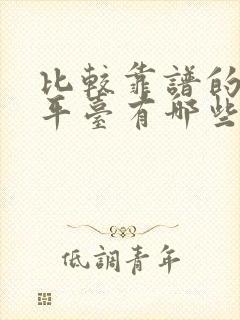 比較靠譜的
平臺有哪些
低調青年